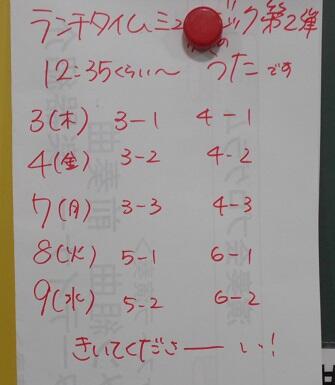 ランチタイムミュージック第2弾
12:35くらい〜 うたです
3(木) 3-1 4-1
4(金) 3-2 4-2
7(月) 3-3 4-3
8(火) 5-1 6-1
9(水) 5-2 6-2
きいてくださーーい!